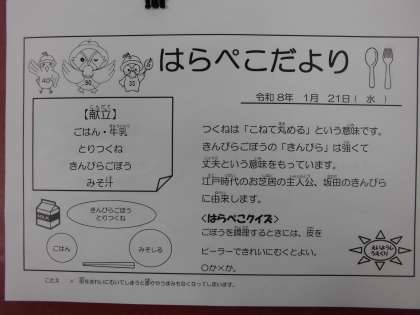 はらぺこだより
令和8年 1月 21日( 水 )
【献立】
ごはん・牛乳
とりつくね
きんぴらごぼう
みそ汁
つくねは「こねて丸める」という意味です。
きんぴらごぼうの「きんぴら」は強くて
丈夫という意味をもっています。
江戸時代のお芝居の主人公、坂田のきんぴら
に由来します。
<はらぺこクイズ>
ごぼうを調理するときには、皮を
ピーラーできれいにむくとよい。
○か×か。
きんぴらごぼう
とりつくね
ごはん
みそしる
えいようし
こたえ:× 皮をきれいにむいてしまうと香りやうまみもなくなってしまいます。